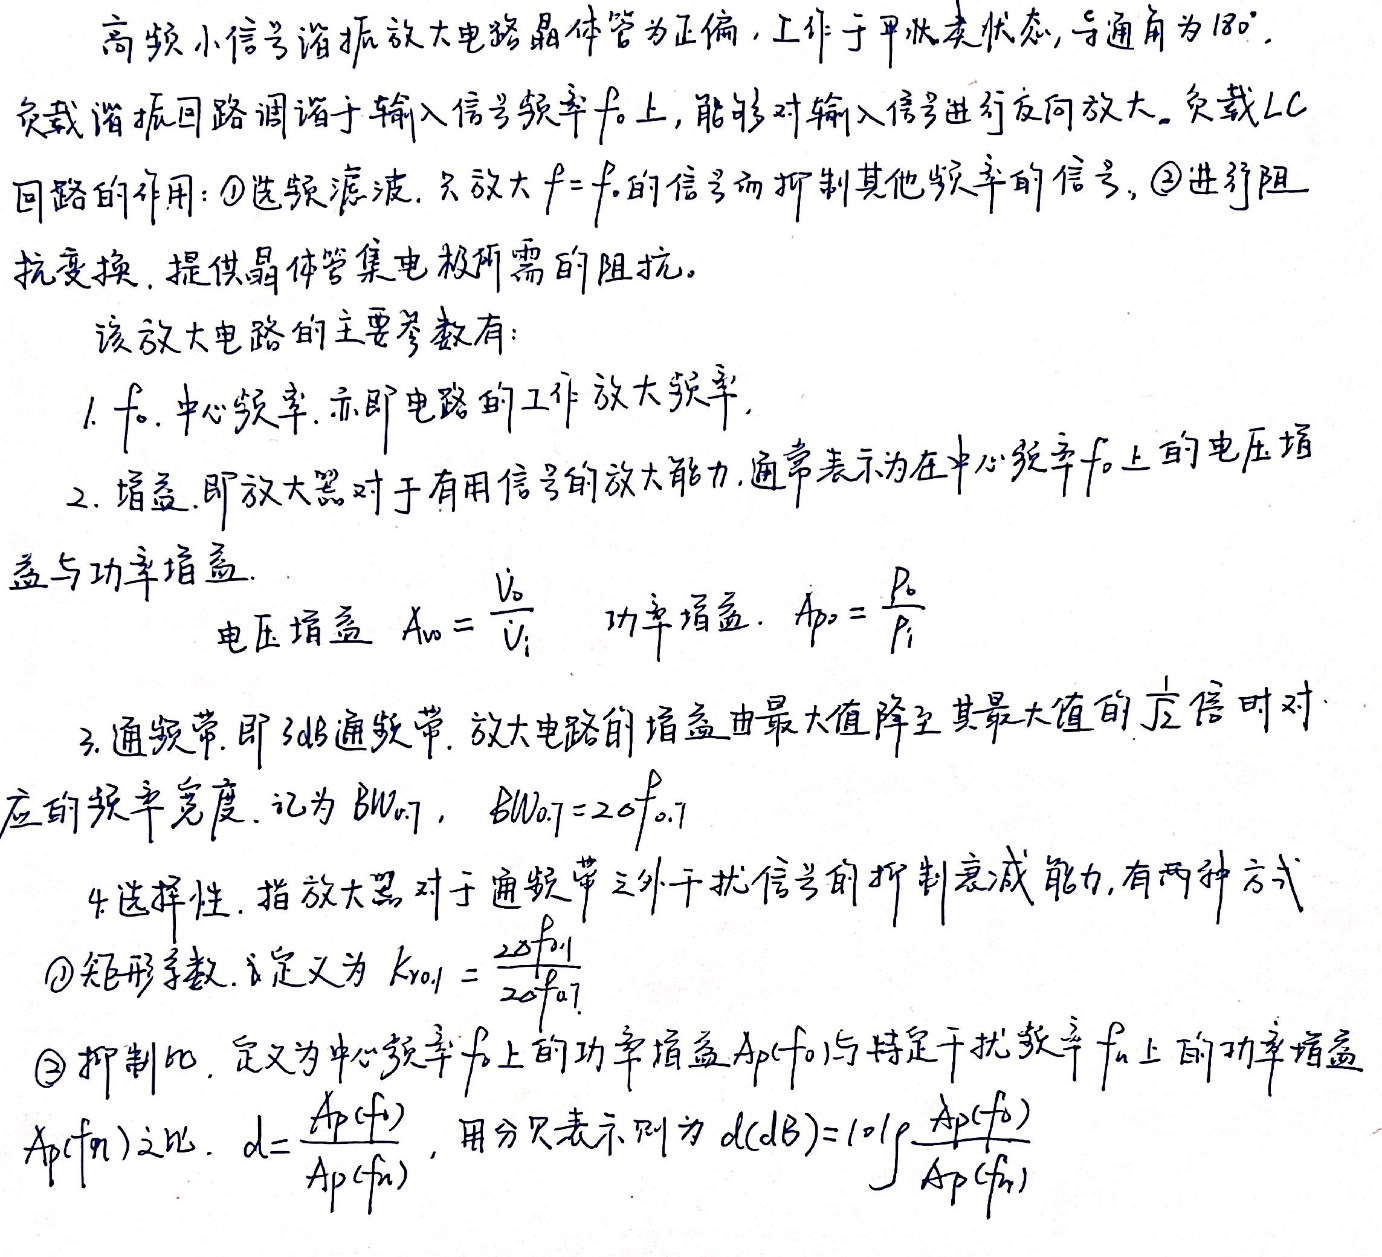 高频小信号谐振放大电路晶体管为正偏,工作于甲类状态,导通角为180°.
负载谐振回路调谐于输入信号频率f₀上,能够对输入信号进行反向放大。负载LC
回路的作用:①选频滤波.只放大f=f₀的信号而抑制其他频率的信号,②进行阻
抗变换.提供晶体管集电极所需的阻抗。
该放大电路的主要参数有:
1. f₀.中心频率.亦即电路的工作放大频率.
2. 增益.即放大器对于有用信号的放大能力.通常表示为在中心频率f₀上的电压增
益与功率增益.
电压增益 Av₀ = V̇₀/V̇i 功率增益. Ap₀ = P₀/Pi
3.通频带.即3dB通频带.放大电路的增益由最大值降至其最大值的1/√2倍时对
应的频率宽度.记为BW0.7, BW0.7=2Δf0.7
4.选择性.指放大器对于通频带之外干扰信号的抑制衰减能力,有两种方式
①矩形系数.定义为 Kr0.1 = 2Δf0.1/2Δf0.7
②抑制比.定义为中心频率f₀上的功率增益Ap(f₀)与特定干扰频率fn上的功率增益
Ap(fn)之比. d=Ap(f₀)/Ap(fn),用分贝表示则为d(dB)=10lg Ap(f₀)/Ap(fn)